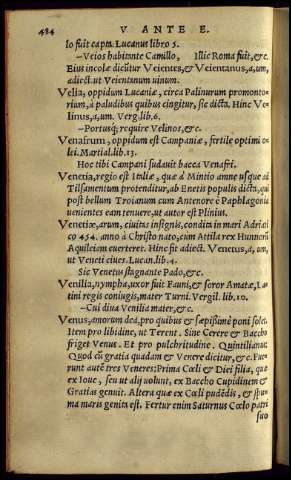 484 V ANTE E.
lo fuit capta. Lucanus libro 5.
—Veios habitante Camillo, Illic Roma fuit, &c.
Eius incolæ dicūtur Veientes, & Veientanus, a, um,
adiect. ut Veientanum uinum.
Velia, oppidum Lucaniæ, circa Palinurum promonto-
rium, à paludibus quibus cingitur, sic dicta. Hinc Ve-
linus, a, um. Verg. lib. 6.
—Portusq; require Velinos, &c.
Venafrum, oppidum est Campaniæ, fertile optimi o-
lei. Martial. lib. 13.
Hoc tibi Campani sudauit bacca Venafri.
Venetia, regio est Italiæ, quæ à Mintio amne usque ad
Tilsamentum protenditur, ab Enetis populis dicta, qui
post bellum Troianum cum Antenore è Paphlagonia
uenientes eam tenuere, ut autor est Plinius.
Venetiæ, arum, ciuitas insignis, condita in mari Adriati
co 454. anno à Christo nato, cum Attila rex Hunnorū
Aquileiam euerteret. Hinc fit adiect. Venetus, a, um,
ut Veneti ciues. Lucan. lib. 4.
Sic Venetus stagnante Pado, &c.
Venilia, nympha, uxor fuit Fauni, & soror Amatæ, La-
tini regis coniugis, mater Turni. Vergil. lib. 10.
—Cui diua Venilia mater, &c.
Venus, amorum dea, pro quibus & sæpissime poni solet.
Item pro libidine, ut Terent. Sine Cerere & Baccho
friget Venus. Et pro pulchritudine. Quintilianus:
Quod cū gratia quadam & Venere dicitur, &c. Fue-
runt autē tres Veneres: Prima Cœli & Diei filia, quæ
ex Ioue, seu ut alij uolunt, ex Baccho Cupidinem &
Gratias genuit. Altera quæ ex Cœli pudēdis, & spu-
ma maris genita est. Fertur enim Saturnus Cœlo patri
suo